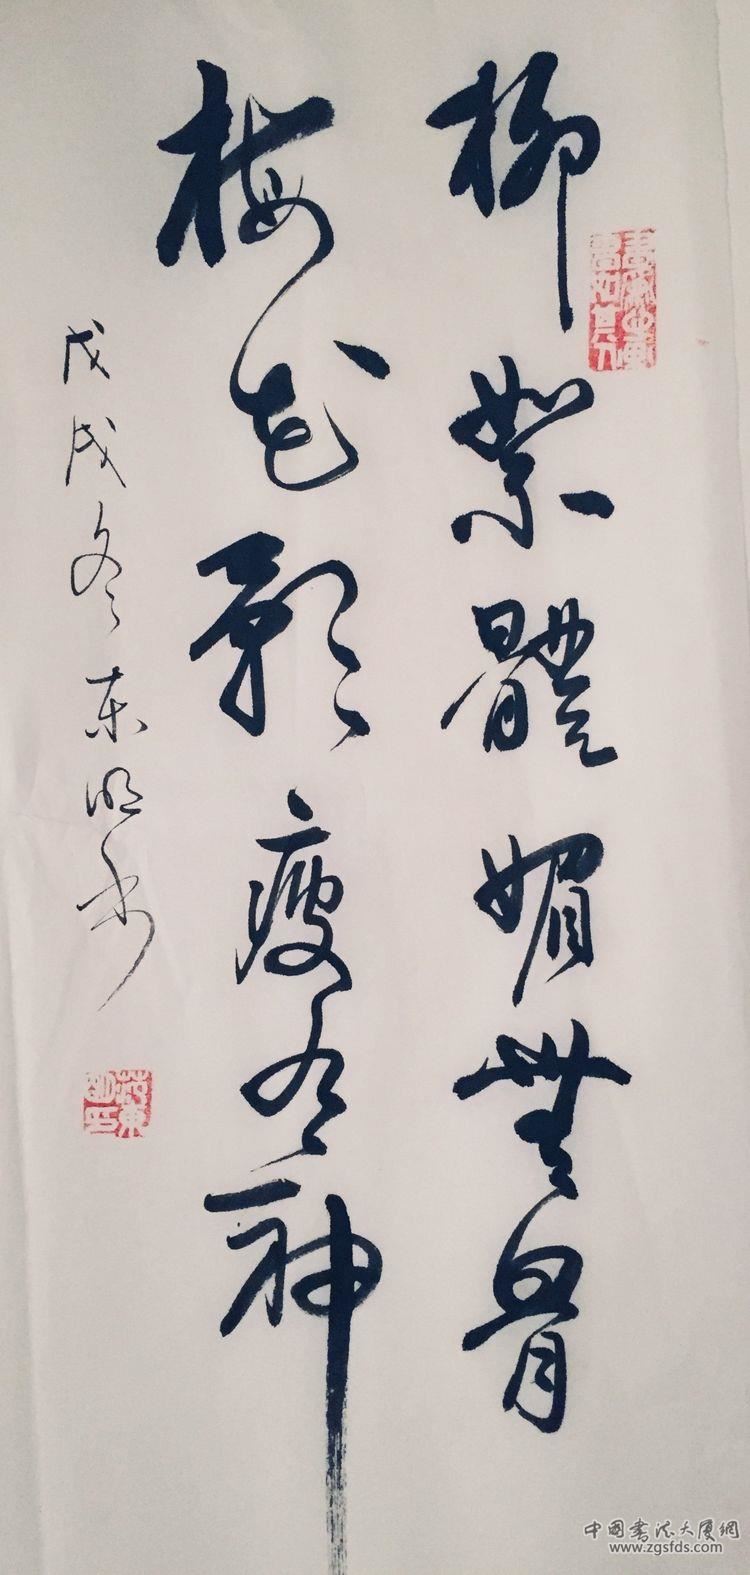 柳絮體媚無骨
梅花瘦有神
戊戌冬东明书
中国书法大厦網
www.zgsfds.com